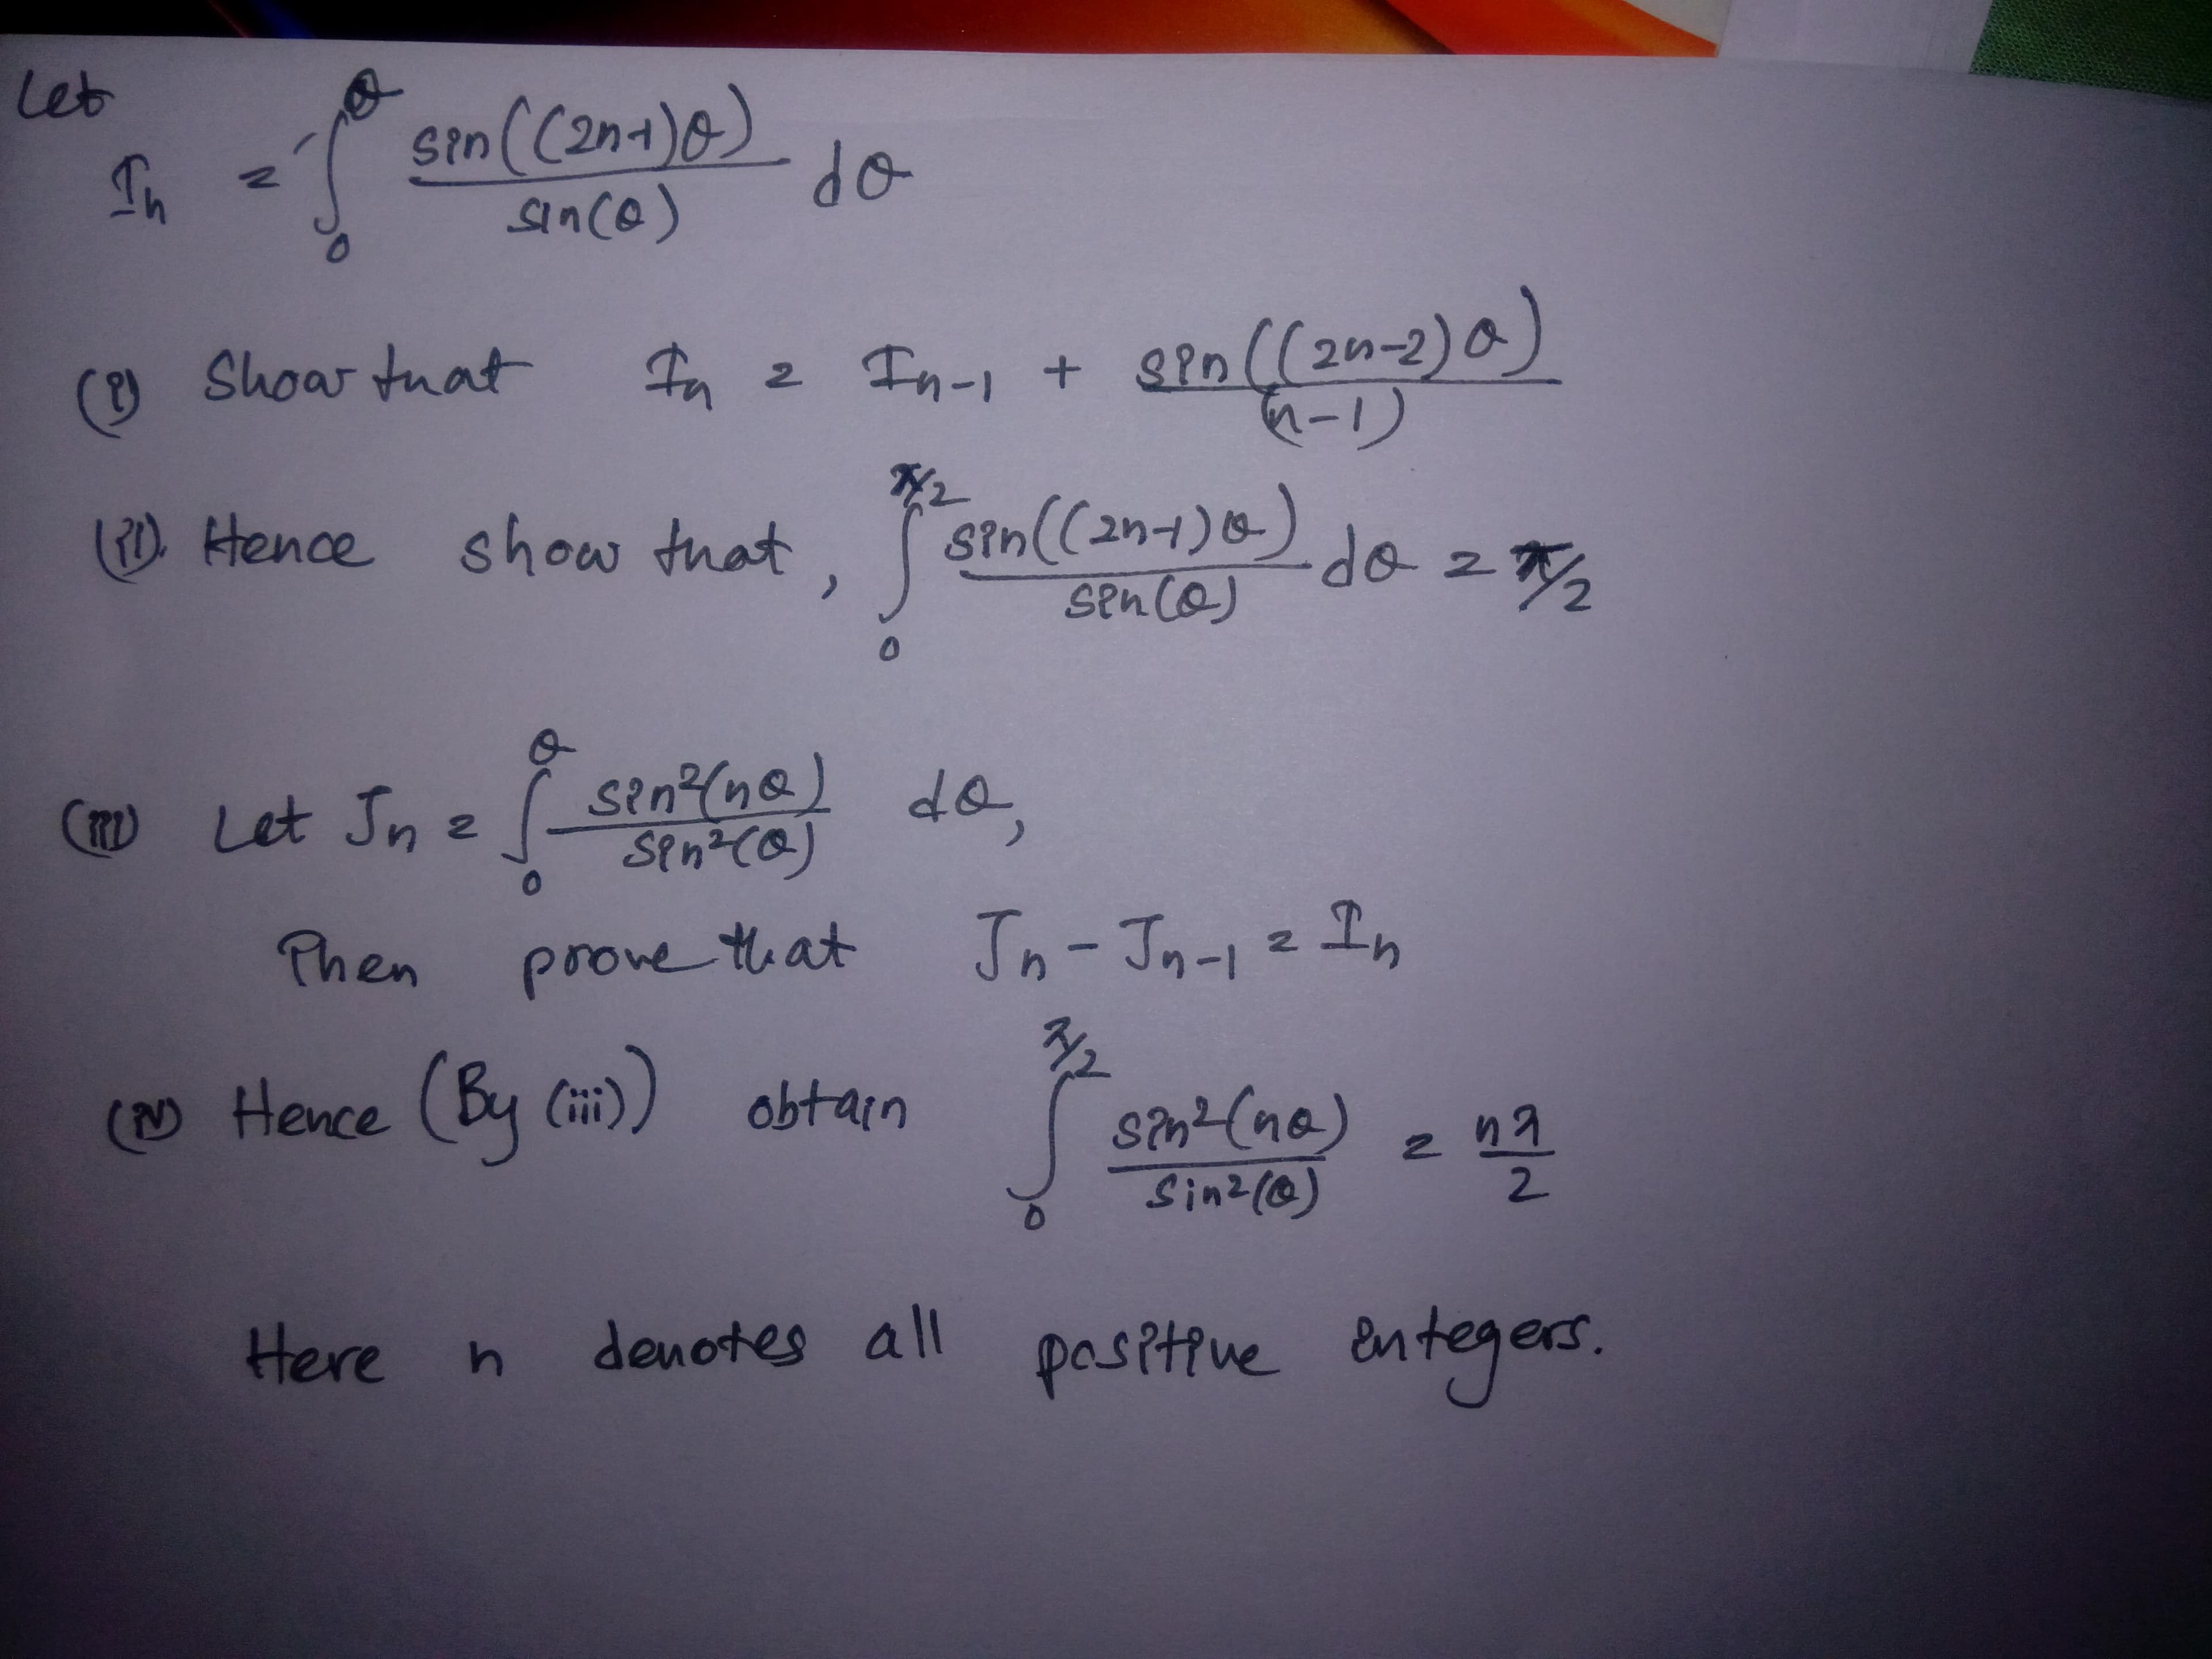 Let
I_n = ∫_0^θ sin((2n-1)θ)/sin(θ) dθ
(i) Show that I_n = I_{n-1} + sin((2n-2)θ)/(n-1)
(ii). Hence show that, ∫_0^{π/2} sin((2n-1)θ)/sin(θ) dθ = π/2
(iii) Let J_n = ∫_0^θ sin²(nθ)/sin²(θ) dθ,
Then prove that J_n - J_{n-1} = I_n
(iv) Hence (By (iii)) obtain ∫_0^{π/2} sin²(nθ)/sin²(θ) = nπ/2
Here n denotes all positive integers.